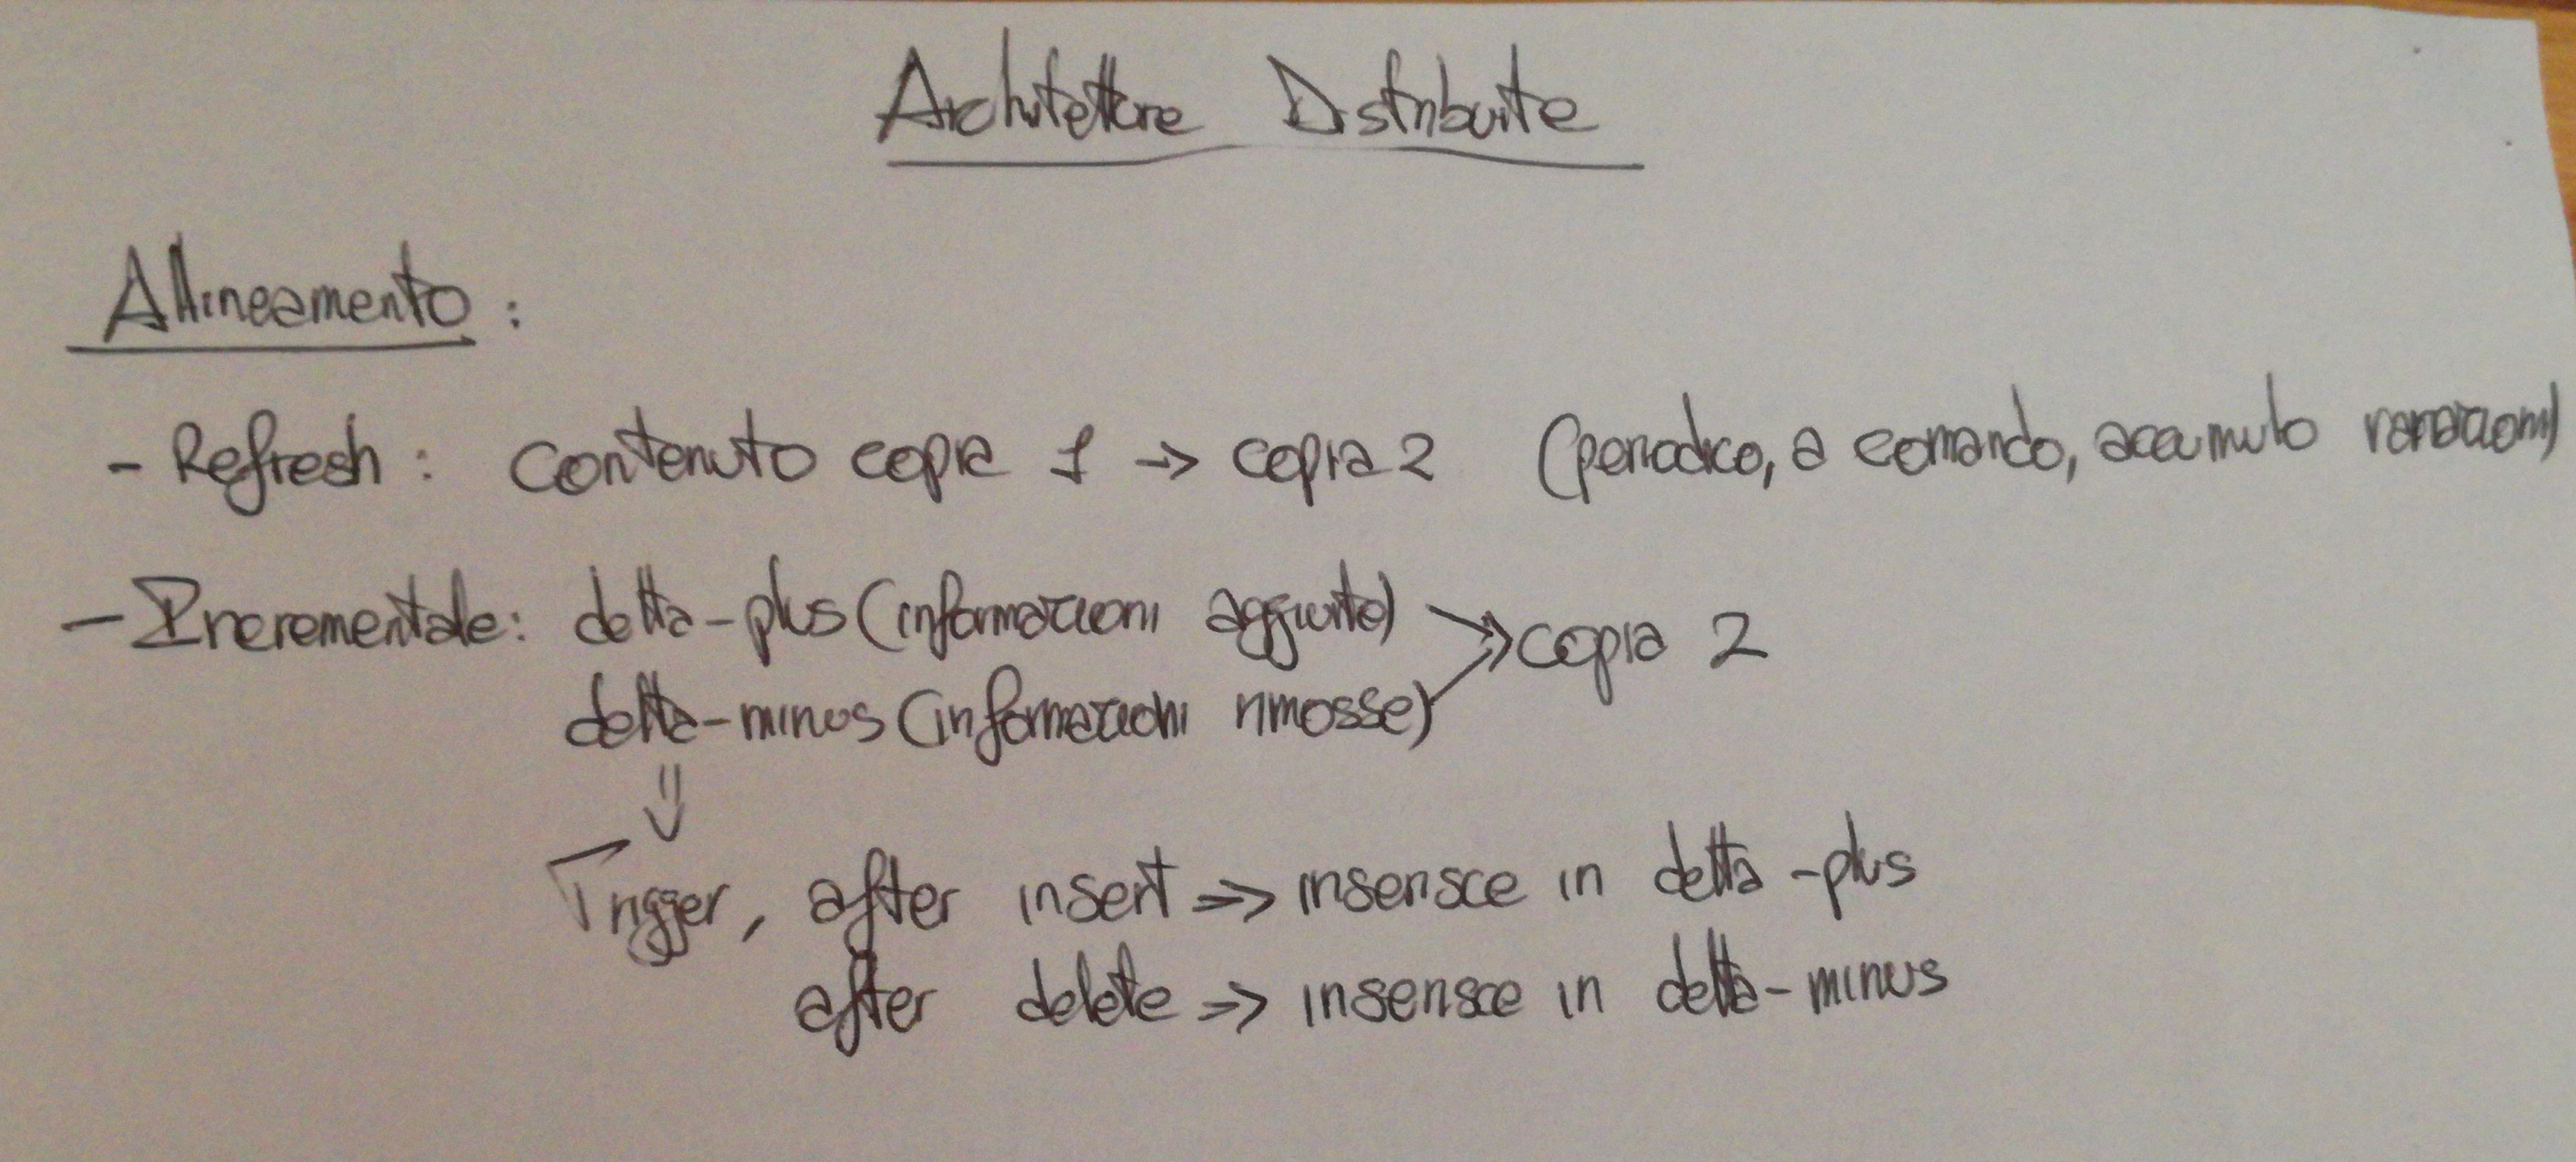 Architetture Distribuite
Allineamento:
- Refresh: contenuto copia 1 -> copia 2 (periodico, a comando, accumulo variazioni)
- Incrementale: delta-plus (informazioni aggiunte) -> copia 2
delta-minus (informazioni rimosse)
⇓
Trigger, after insert => inserisce in delta-plus
after delete => inserisce in delta-minus